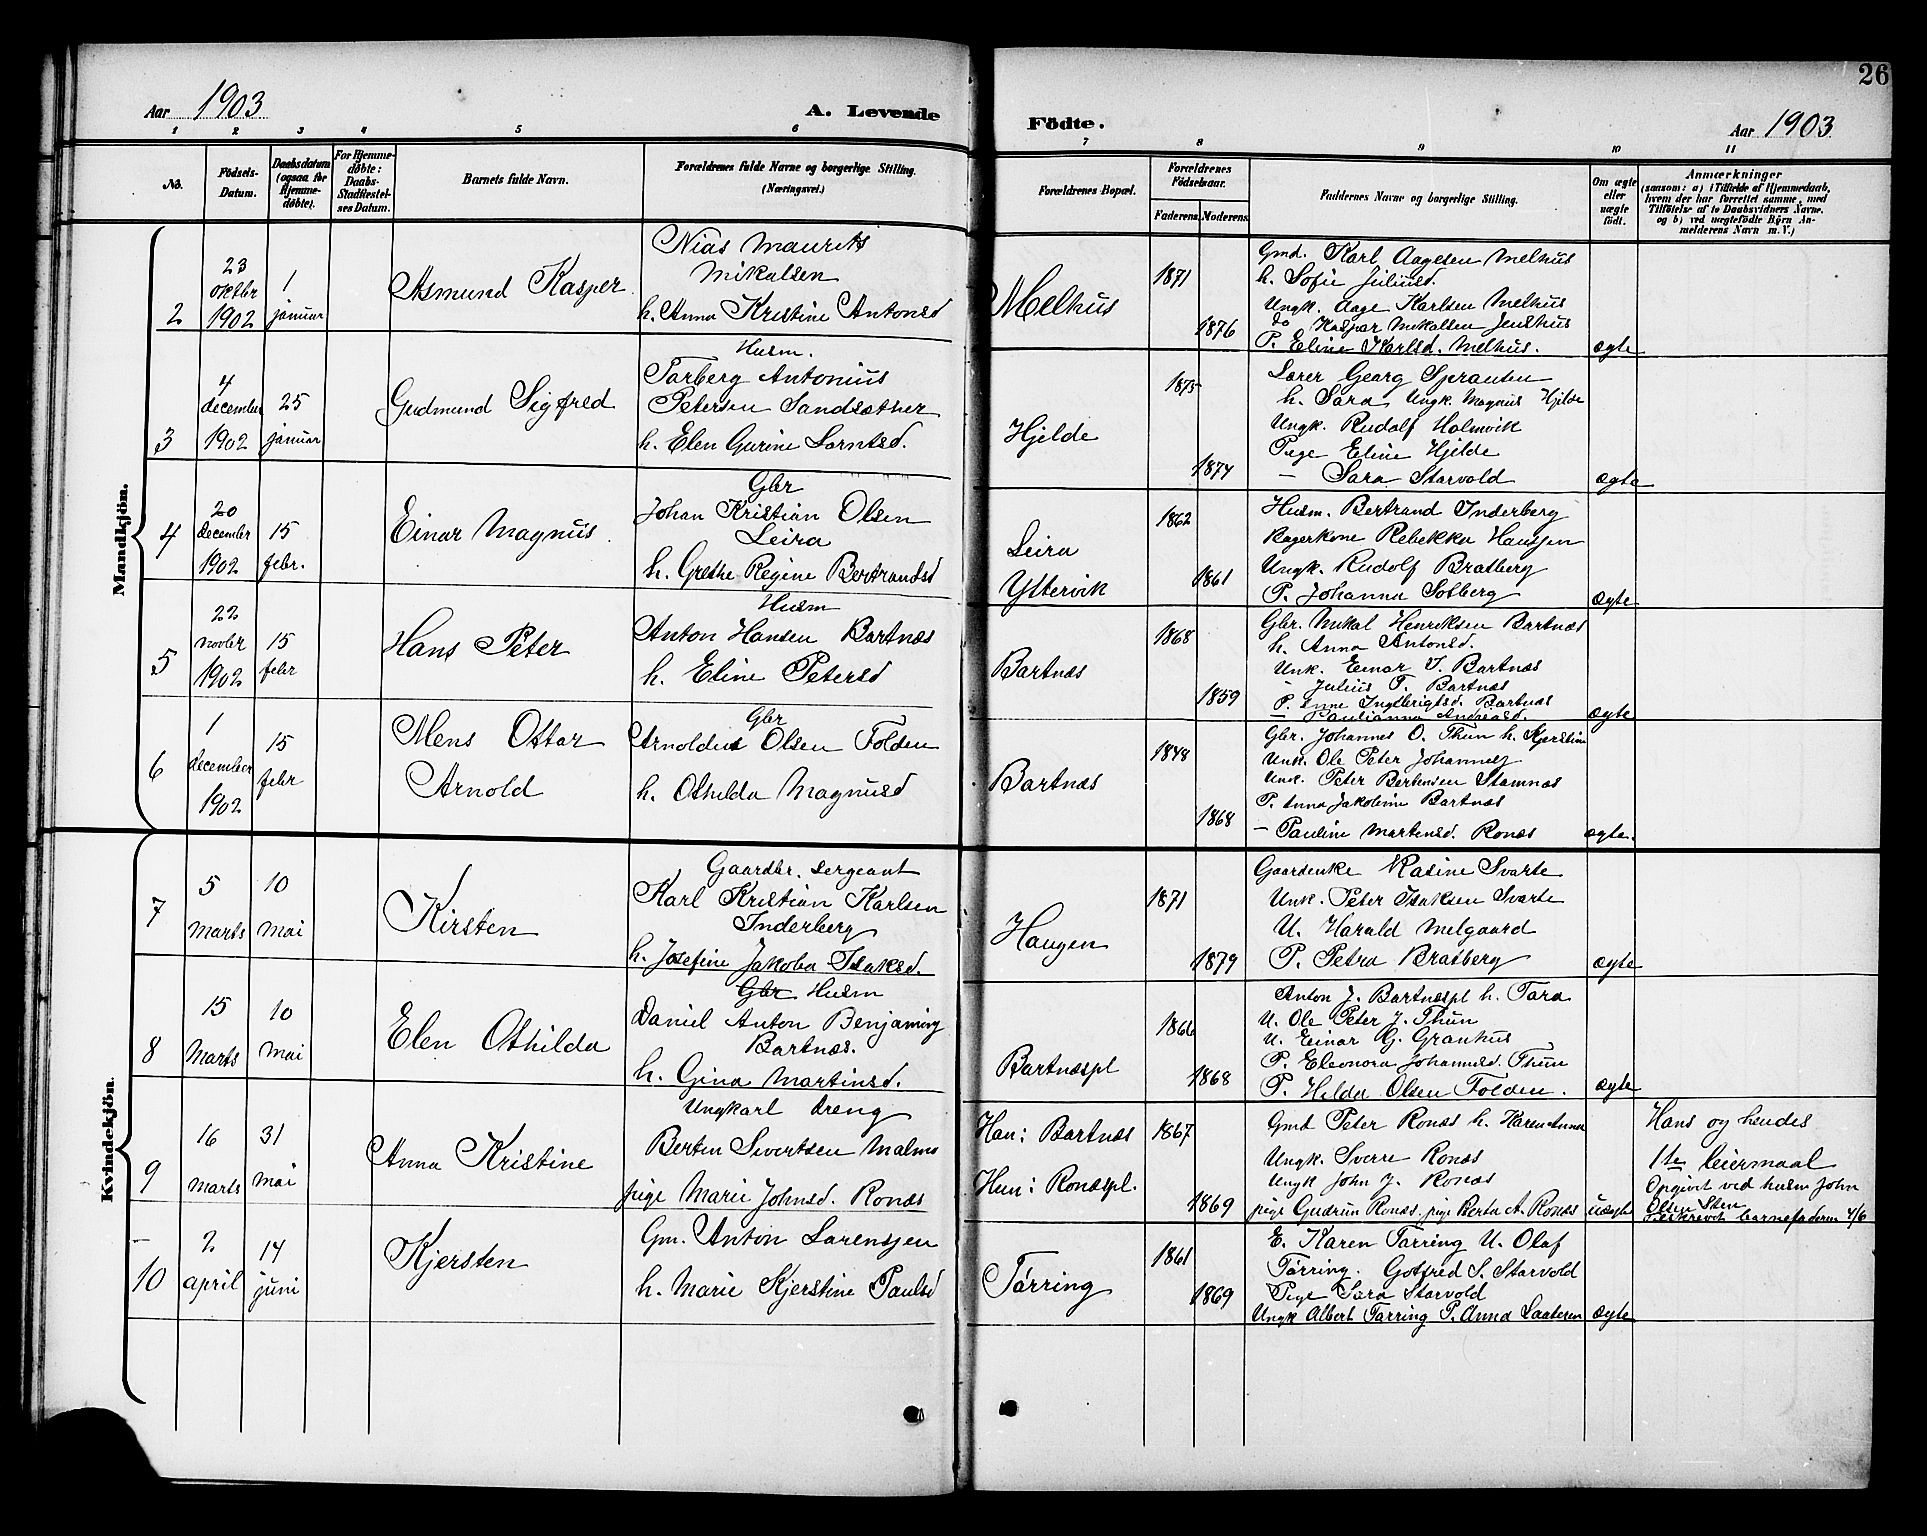 26
Aar 1903
A. Levende
Födte.
Aar 1903
1 2 3 4 5 6 7 8 9 10 11
No.
Födsels-Datum.
Daabsdatum (ogsaa for Hjemmedøbte).
For Hjemmedøbte: Daabs-Stadfæstelses Datum.
Barnets fulde Navn.
Forældrenes fulde Navne og borgerlige Stilling.
(Næringsvei.)
Forældrenes Bopæl.
Forældrenes Fødselsaar.
Faderens. Moderens.
Faddernes Navne og borgerlige Stilling.
Om ægte eller uægte født.
Anmærkninger
(saasom: a) i Tilfælde af Hjemmedaab,
hvem der har forrettet samme, med
Tilføielse af to Daabsvidners Navne.
og b) ved uægtefødte Børn An-
melderens Navn m. V.)
Mandkjön.
2
23 oktbr 1902
1 januar
Asmund Kasper
Nias Maurits
Mikalsen
h. Anna Kristine Antonsd
Melhus
1871
1876
Gmd. Karl Aagesen Melhus
h. Sofie Juliusd.
Ungk. Aage Karlsen Melhus
do Kaspar Mikalsen Jenshus
P. Eline Karlsd. Melhus.
ægte
3
4 december 1902
25 januar
Gudmund Sigfred
Husm.
Torberg Antonius
Petersen Sandsæther
h. Elen Gurine Lorntsd.
Hjelde
1875
1874
Lærer Georg Sprauten
h. Sara Ungk. Magnus Hjelde
Ungk. Rudolf Holmvik
Pige Eline Hjelde
— Sara Starvold
ægte
4
20 december 1902
15 febr.
Einar Magnus
Gbr
Johan Kristian Olsen
Leira
h. Grethe Regine Bertrandsd
Leira
Yttervik
1862
1861
Husm. Bertrand Inderberg
Bagerkone Rebekka Hanssen
Ungk. Rudolf Bratberg
P. Johanna Solberg
ægte
5
22 novbr 1902
15 febr
Hans Peter
Husm
Anton Hansen Bartnæs
h. Eline Petersd
Bartnæs
1868
1859
Gbr. Mikal Henriksen Bartnæs
h. Anna Antonsd.
Unk. Einar J. Bartnæs
— Julius T. Bartnæs
P. Anne Ingebrigtsd. Bartnæs
— Paulianna Andreasd.
ægte
6
1 december 1902
15 febr
Mens Ottar
Arnold
Gbr
Arnoldus Olsen Folden
h. Othilda Magnusd
Bartnæs
1848
1868
Gbr. Johannes O. Thun h. Kjerstine
Unk. Ole Peter Johannes
Unk. Peter Berntsen Stamnæs
P. Anna Jakobine Bartnæs
— Pauline Martensd. Ronæs
ægte.
Kvindekjön.
7
5 Marts
10 mai
Kirsten
Gaardbr. Sergeant
Karl Kristian Karlsen
Inderberg
h. Josefine Jakoba Isaksd.
Haugen
1871
1879
Gaardenke Rasine Svarte
Unk. Peter Isaksen Svarte
U. Harald Melgaard
P. Petra Bratberg
ægte
8
15 Marts
10 mai
Elen Othilda
Gbr Husm
Daniel Anton Benjaming
Bartnæs.
h. Gina Martinsd.
Bartnæspl
1866
1868
Anton J. Bartnæspl h. Tara
U. Ole Peter J. Thun
U. Einar G. Granhus
P. Eleonora Johannesd. Thun
P. Hilda Olsen Folden.
ægte
9
16 marts
31 mai
Anna Kristine
Ungkarl dreng
Bertin Sivertsen Malmo
pige Marie Johnsd. Ronæs
Han: Bartnæs
Hun: Ronæspl.
1867
1869
Gmd Peter Ronæs h. Karen Anna
Ungk. Sverre Ronæs
Ungk John J. Ronæs
pige Gudrun Ronæs. pige Berta A. Ronæs
uægte
Hans og hendes
1ste leiermaal
Opgivet ved husm John
Olsen Sten
barnefaderen 4/6
10
2 april
14 juni
Kjersten
Gm. Anton Lorensen
h. Marie Kjerstine Paulsd
Tørring
1861
1869
E. Karen Tørring U. Olaf
Tørring. Gotfred S. Starvold
Pige Sara Starvold
Ungk Albert Tørring P. Anna Laateren
ægte